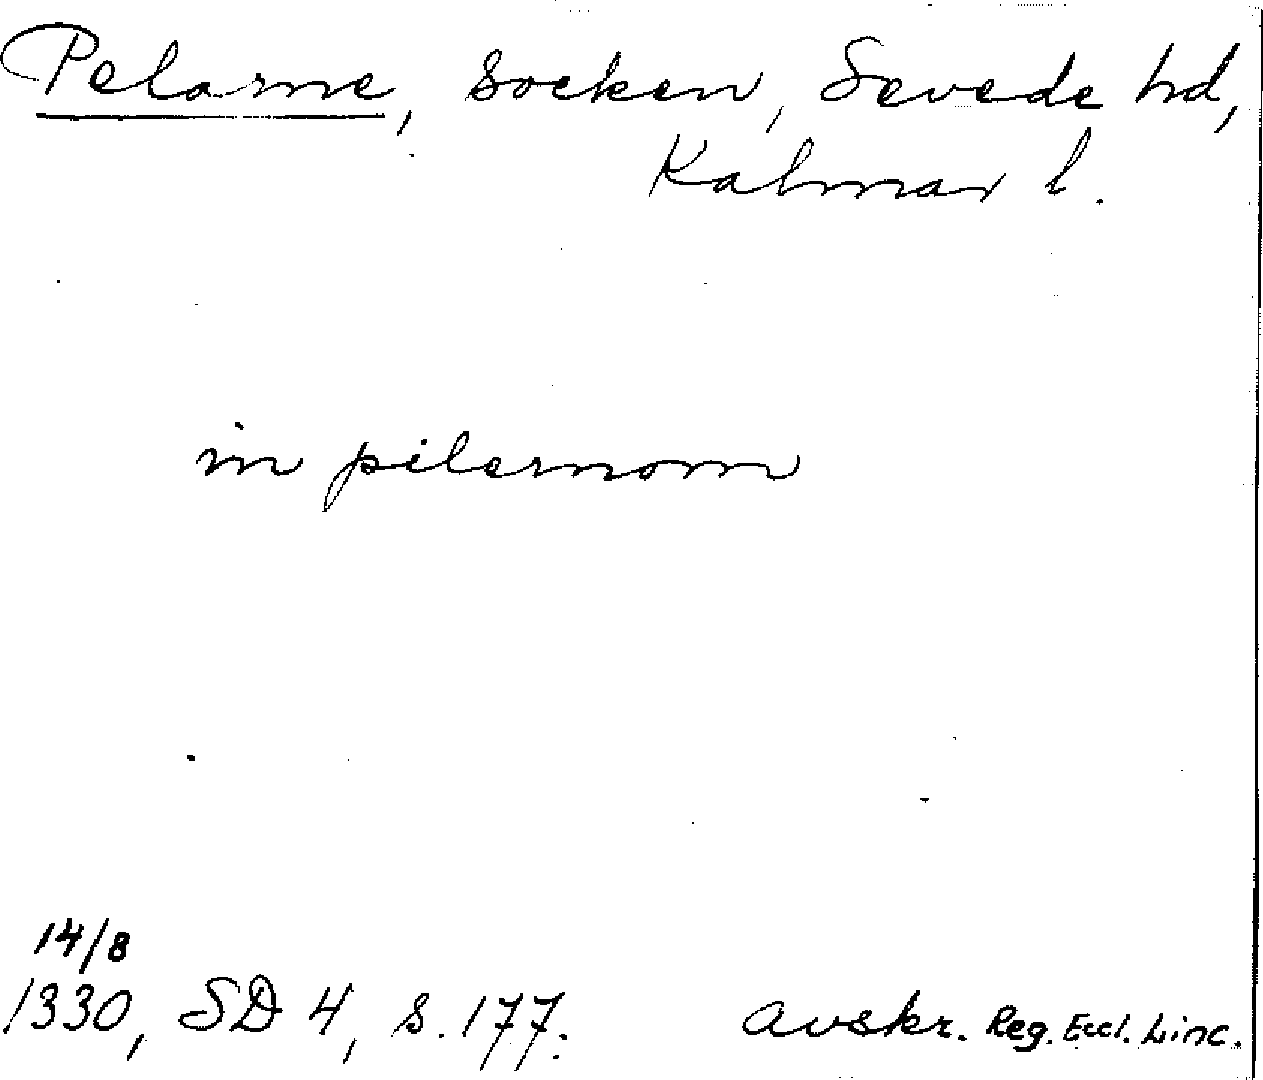 Pelarne, socken, Sevede hd,
Kalmar l.
in pilernom
14/8
1330, SD 4, s. 177.
avskr. Reg. Eccl. Linc.